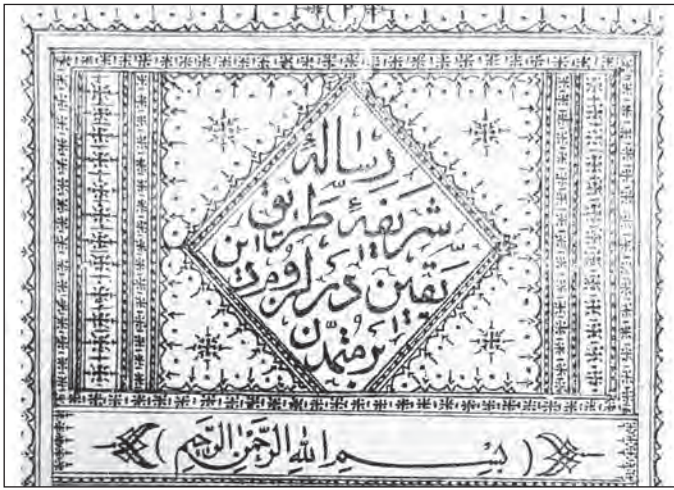 رساله
شریفهٔ طریق
یقین در لزوم دین
بر متمدن
( بِسْمِ اللهِ الرَّحْمٰنِ الرَّحیمِ )